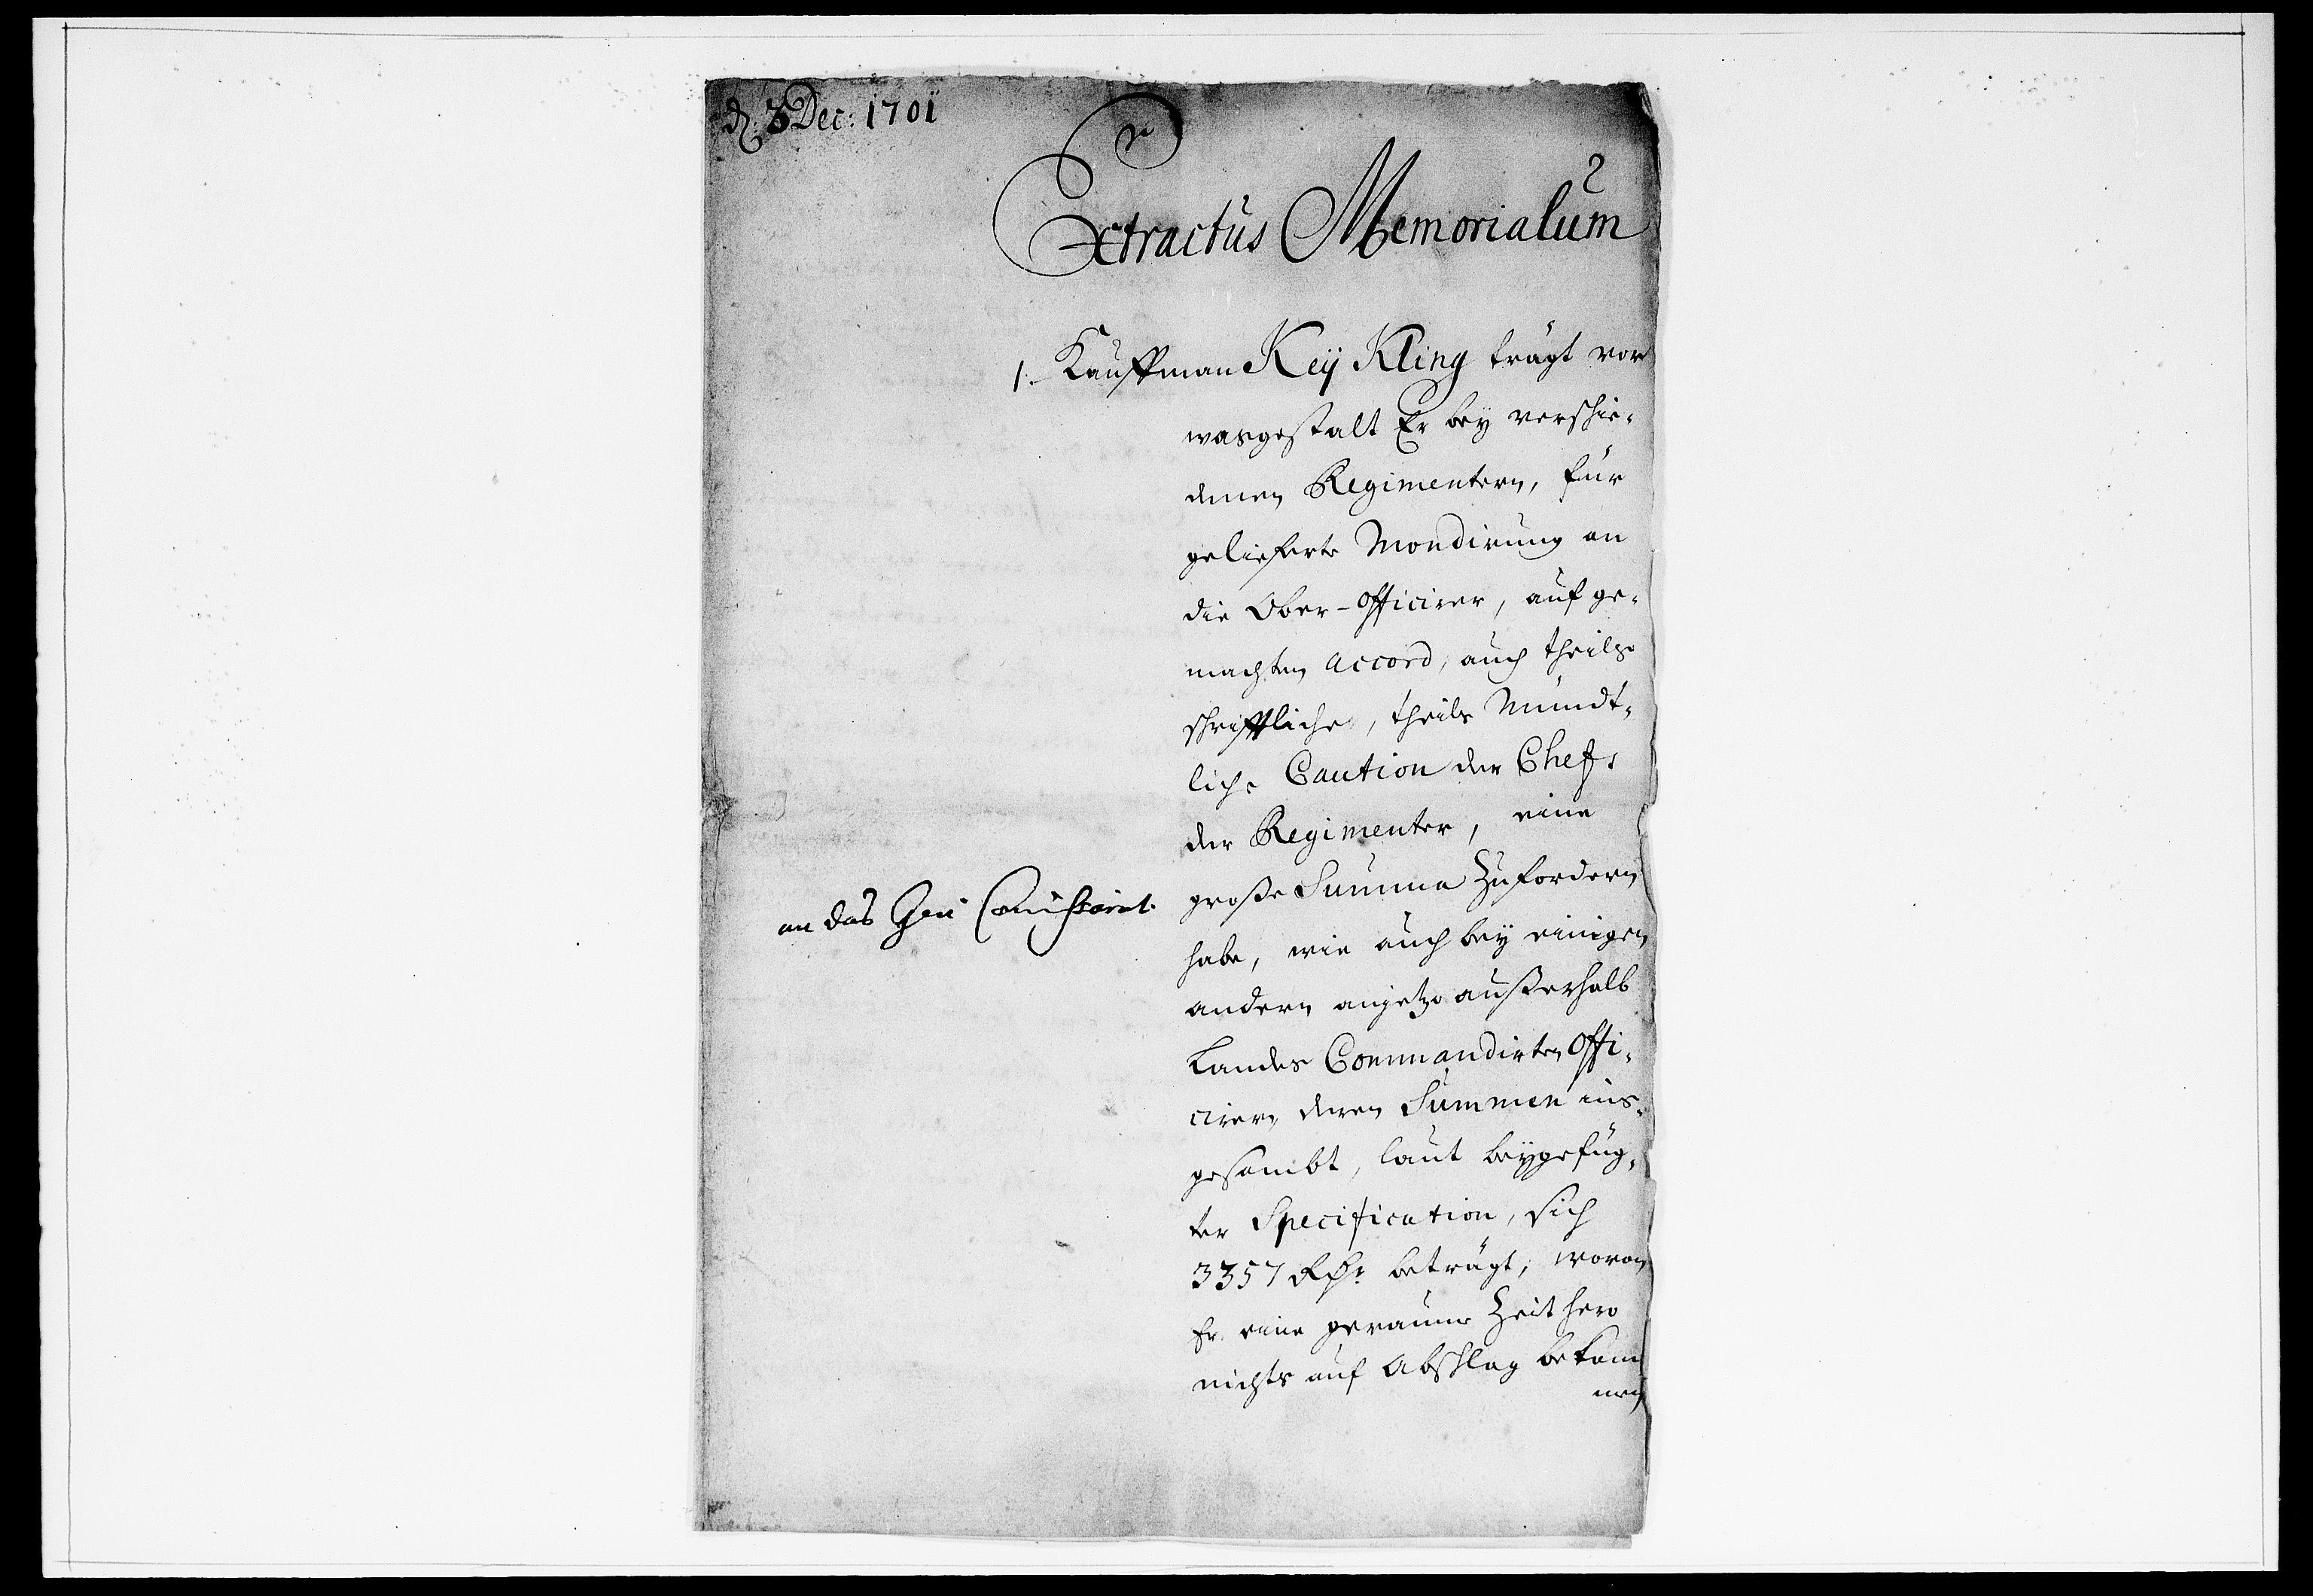 d. 3 Dec: 1701
Extractus Memorialum
1. Kauffman Keÿ Kling trägt vor
wasgestalt Er beÿ verschie-
denen Regimentern, für
gelieferte Mondirung an
die Ober-Officirer, auf ge-
machten accord, auch theilß
schrifftliche, theils Mündt-
liche Caution der Chefs
der Regimenter, eine
große Summa Zufordern
an das Gen Commissariat.
habe, wie auch beÿ einigen
andern anjetzo außerhalb
Landes Commandirten Offi-
cirern, deren Summen ins-
gesambt, laut beÿgefüg-
ter Specification, sich
3357 Rthr beträgt, wovon
Er eine geraume Zeit hero
nichts auf Abschlag bekom
men